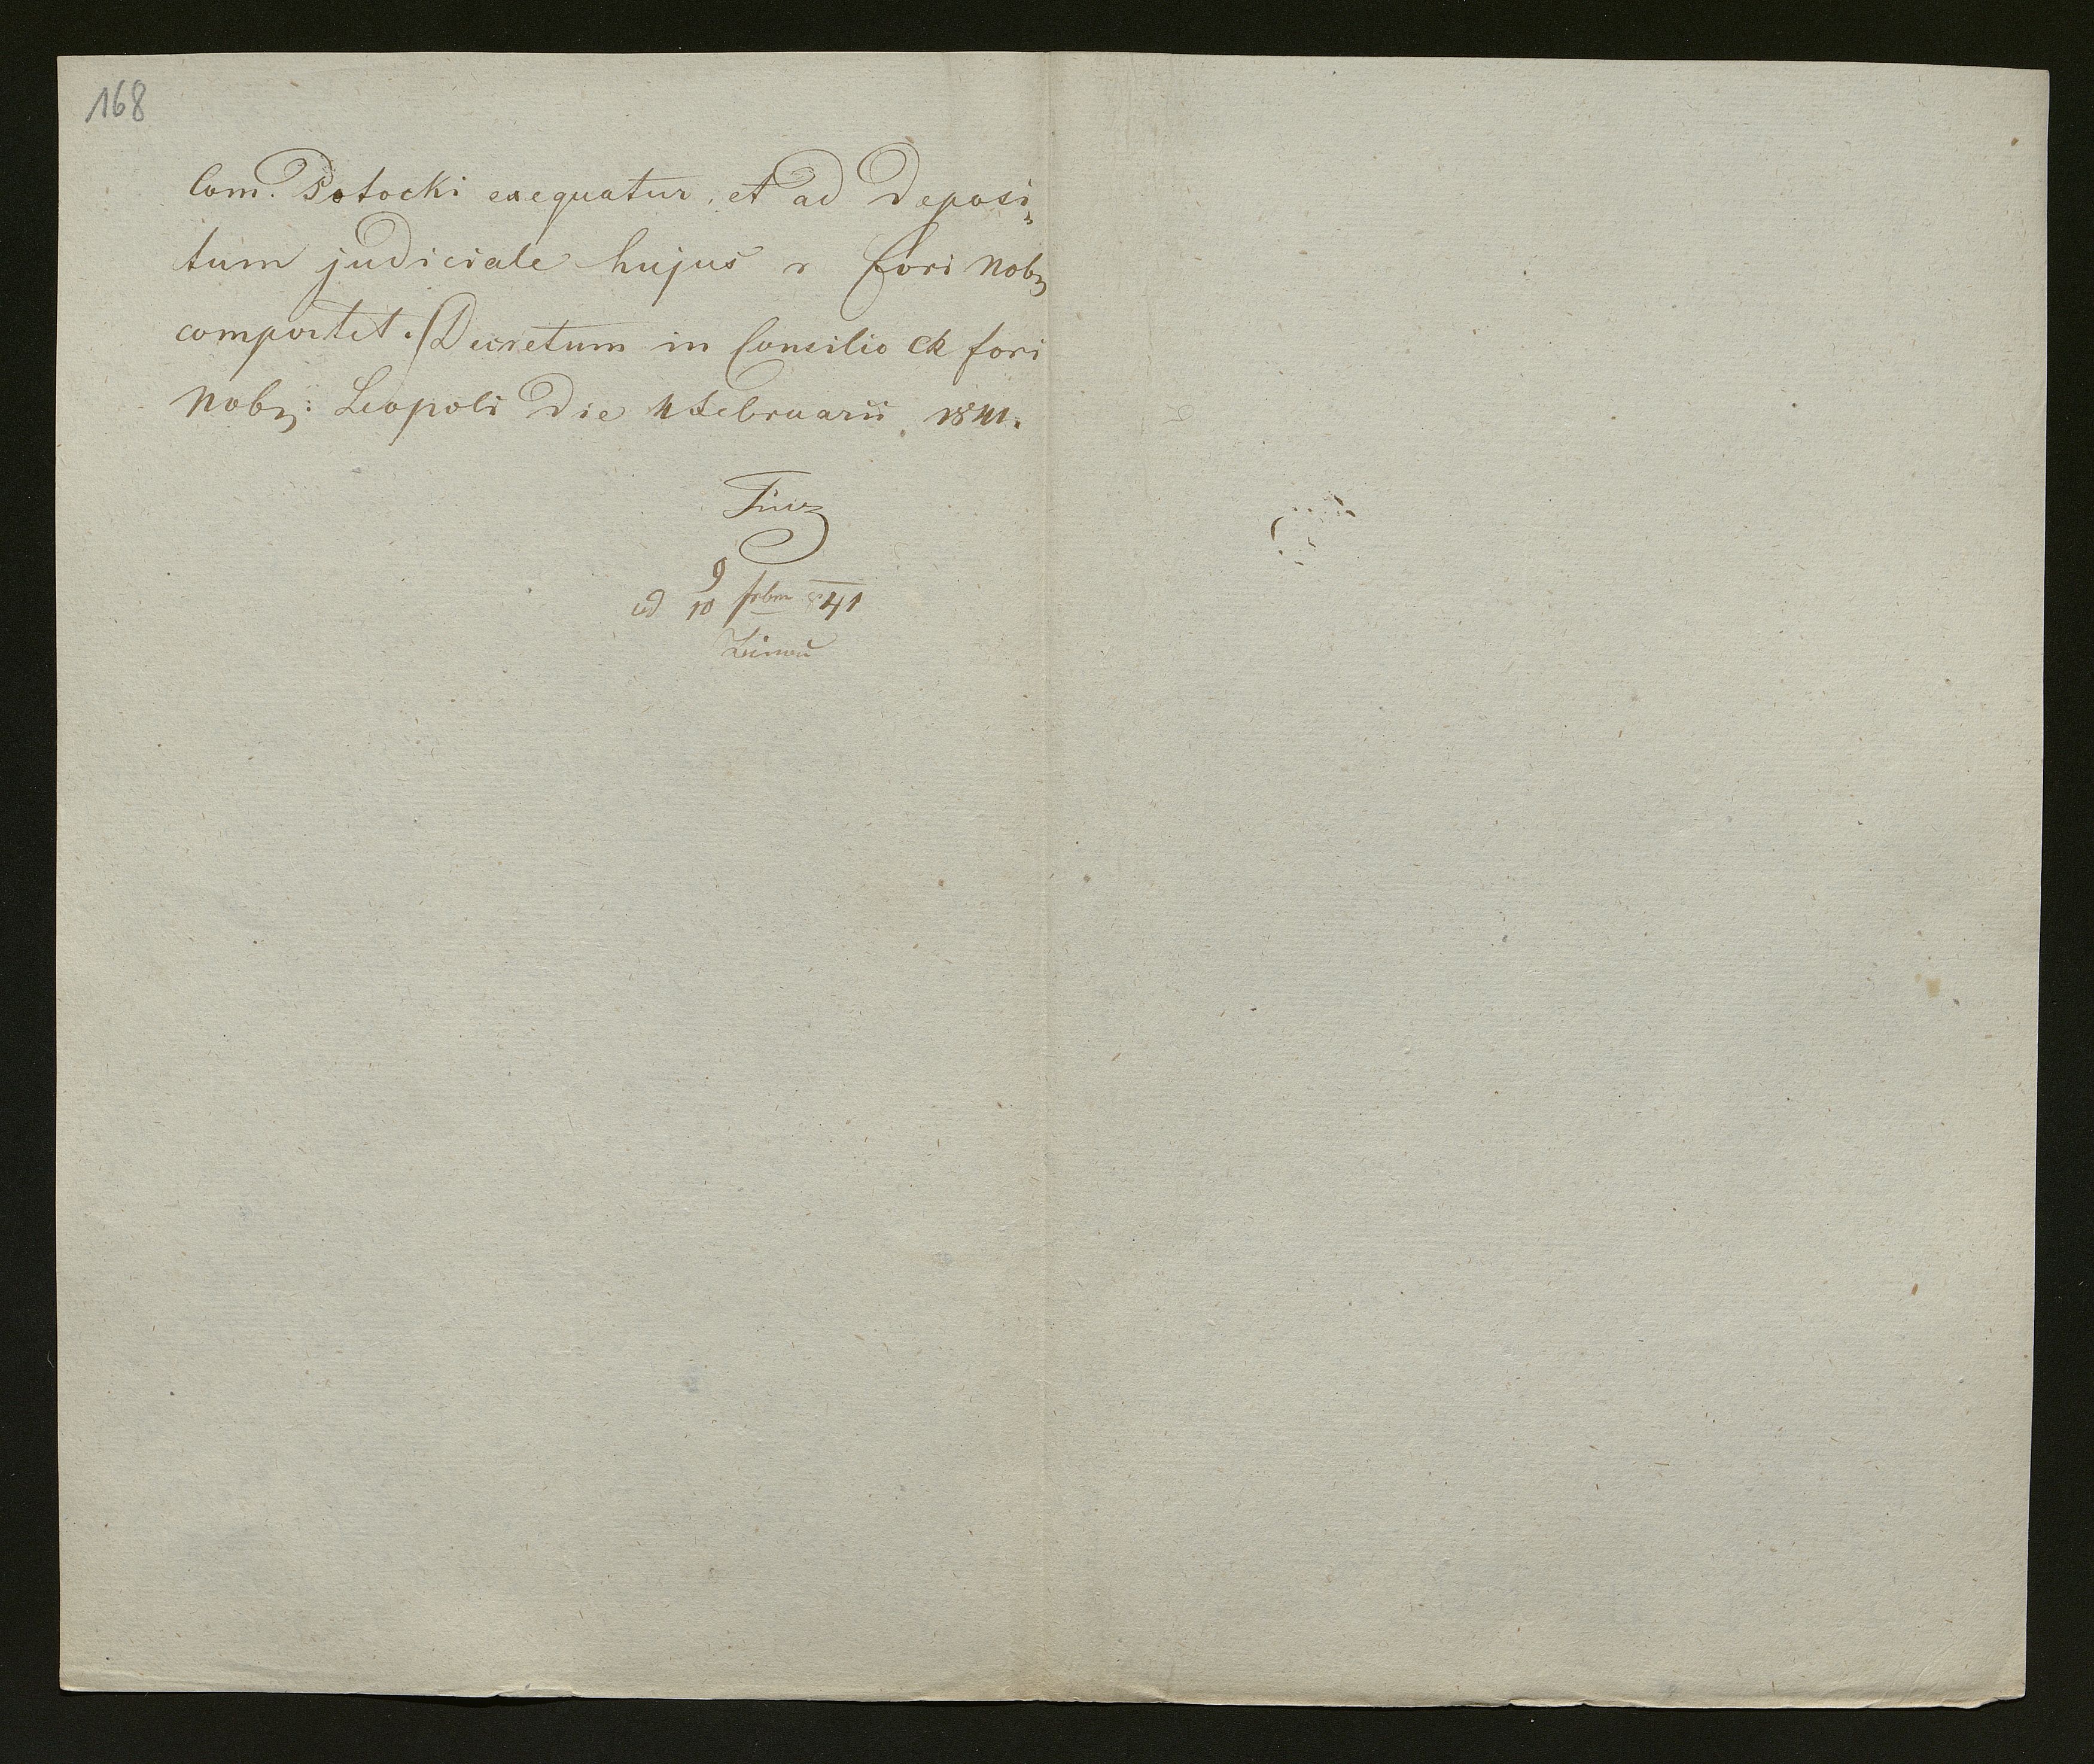 168
Com. Potocki exequatur, et ad Deposi„
tum judiciale hujus r fori Nob
comportet. / Decretum in Consilio CR fori
Nob: Leopoli Die 4 Februarii 1841.
9
10 febr 841